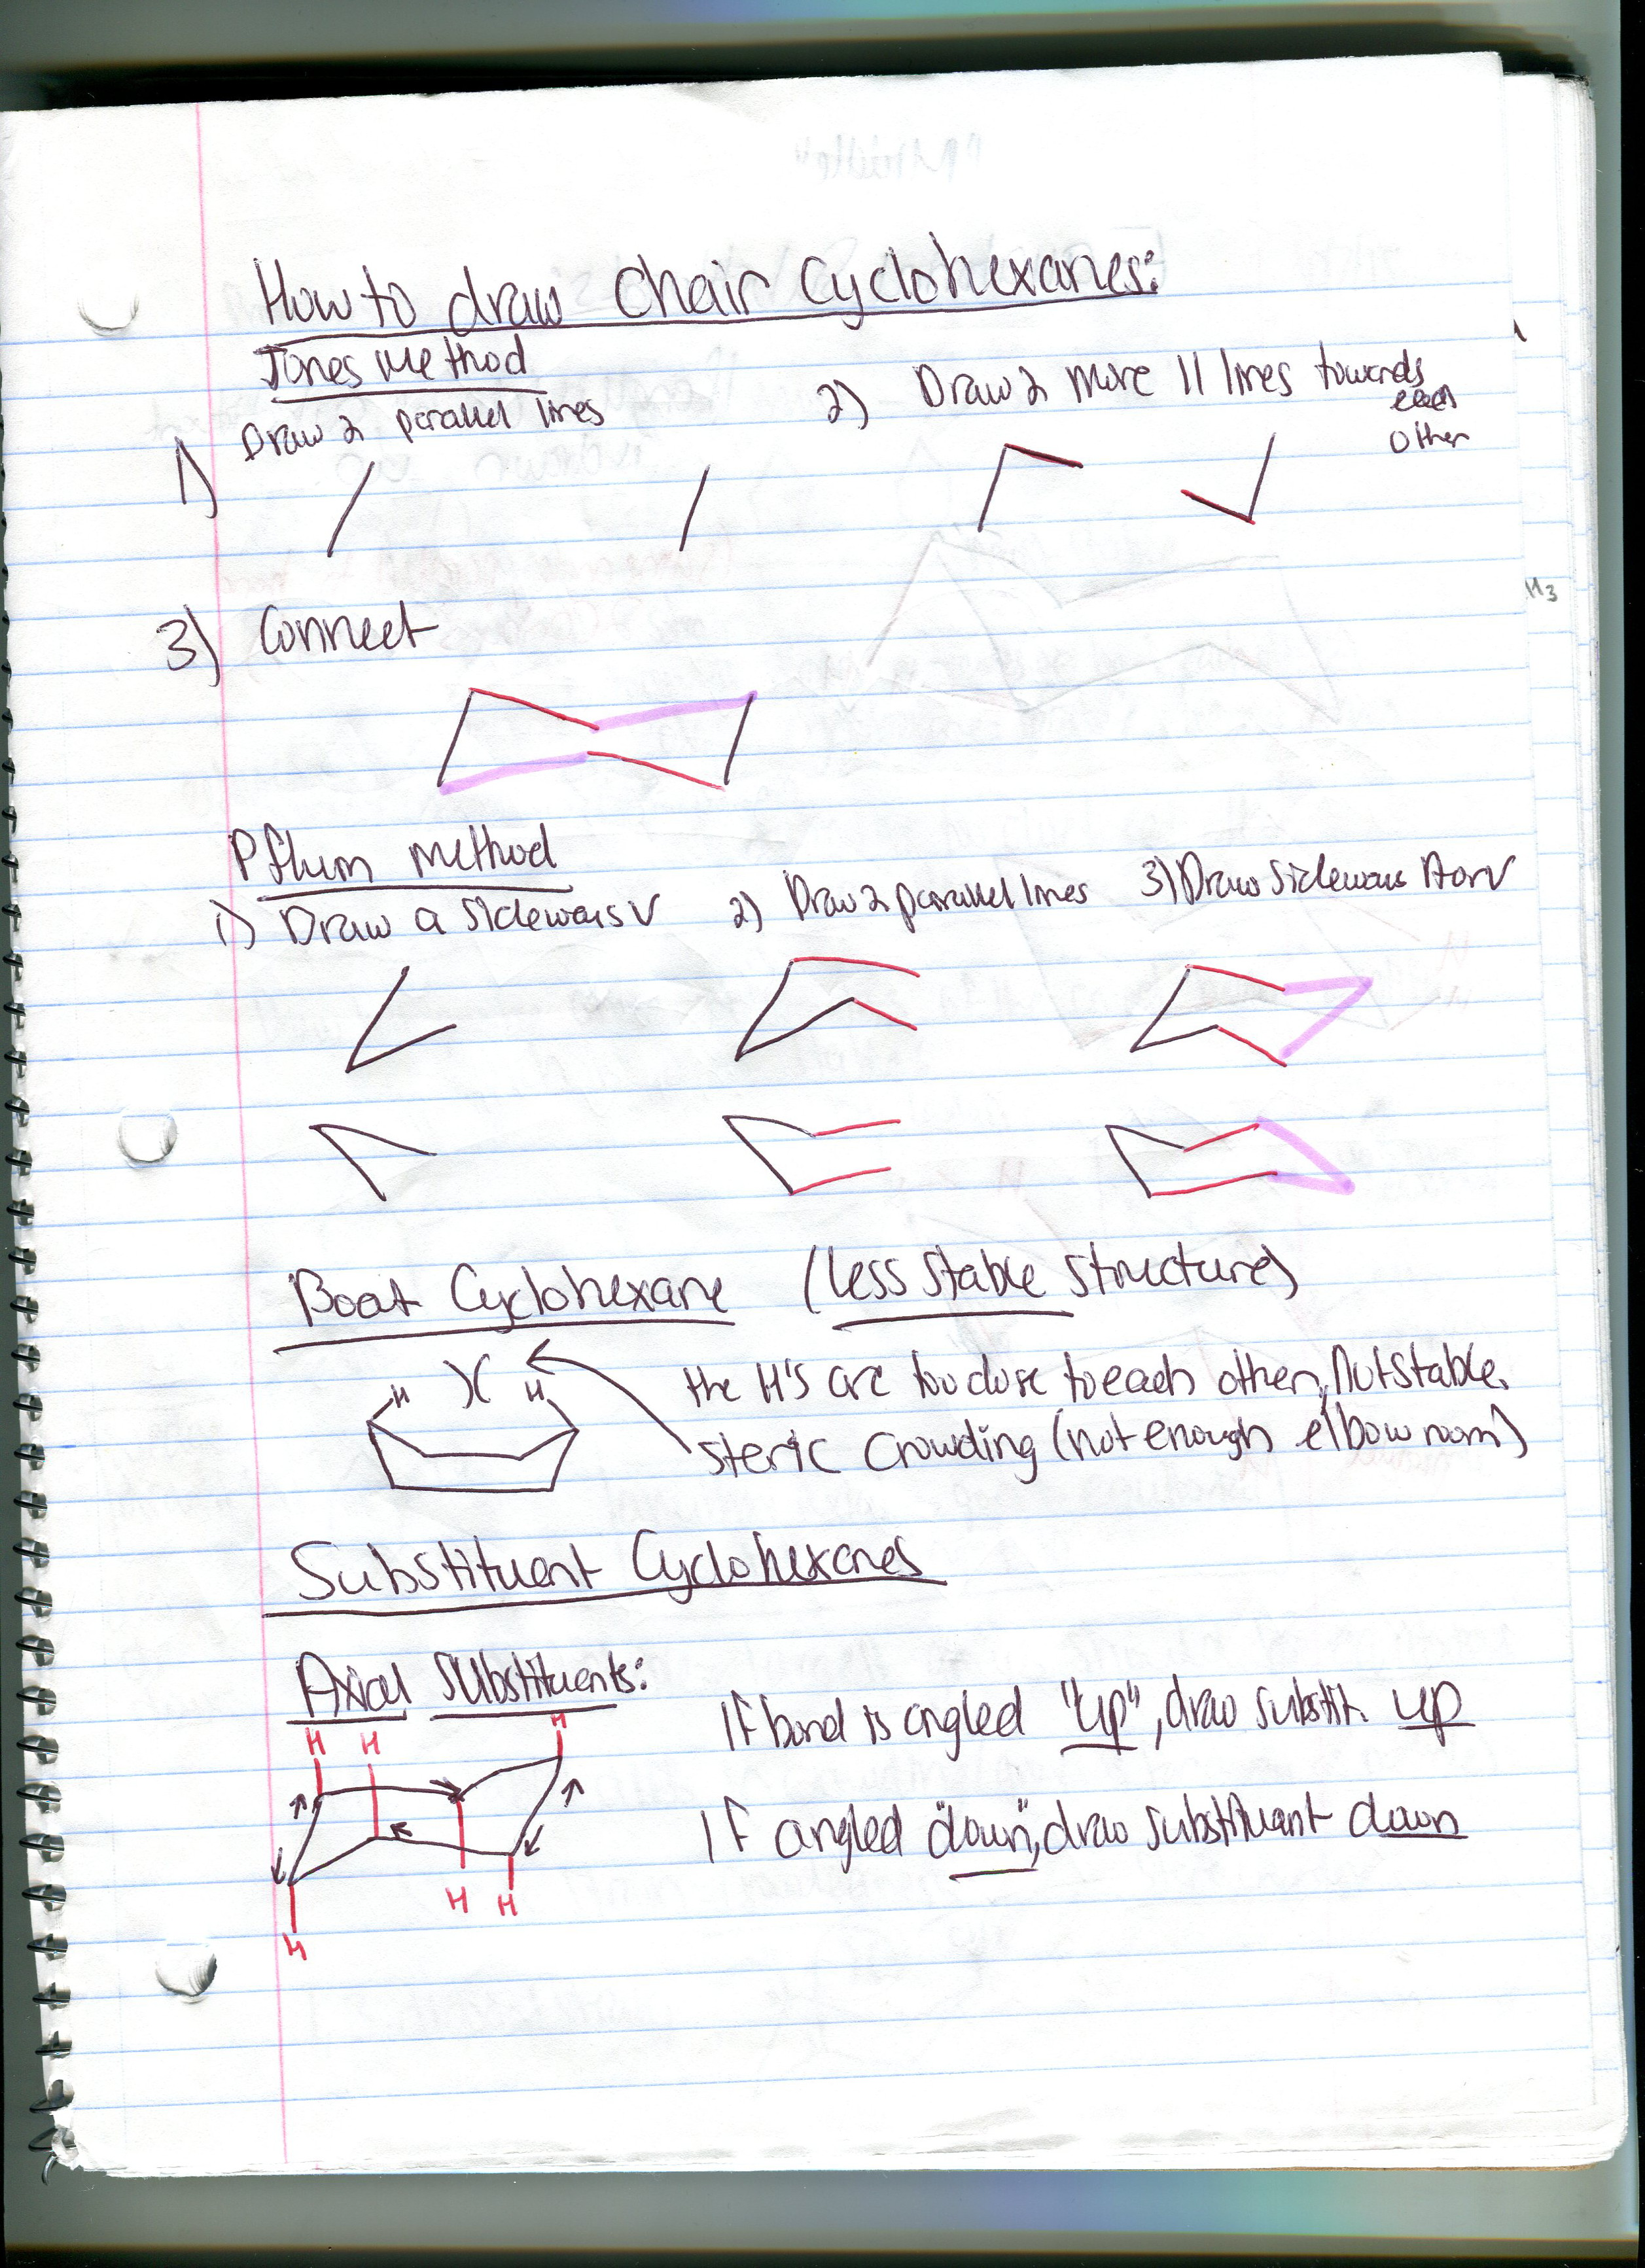 How to draw Chair Cyclohexanes:
Jones Method
1) Draw 2 parallel lines
2) Draw 2 more || lines towards
each
other
3) Connect
Pflum Method
1) Draw a sideways V
2) Draw 2 parallel lines
3) Draw sideways A or V
Boat Cyclohexane (less stable structure)
H H
the H's are too close to each other, not stable.
steric crowding (not enough elbow room)
Substituent Cyclohexanes
Axial Substituents:
H H H
If bond is angled "up", draw substit. up
If angled "down", draw substituant down
H H
H
H3